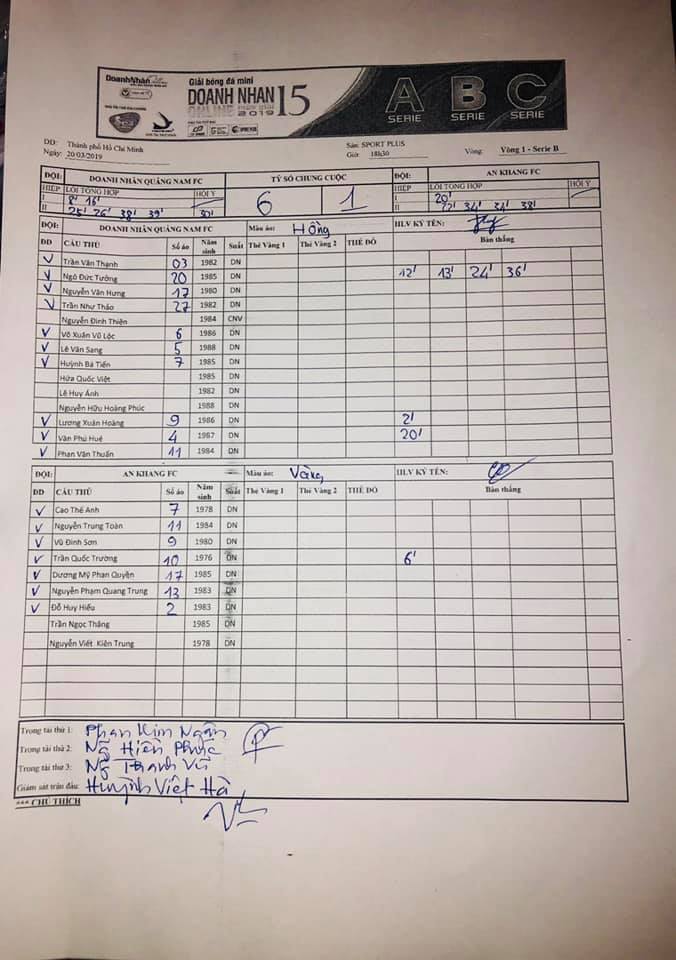 DoanhNhân
Giải bóng đá mini
DOANH NHÂN 15
ONLINE
2019
A B C
SERIE SERIE SERIE
DD: Thành phố Hồ Chí Minh Sân: SPORT PLUS
Ngày: 20/03/2019 Giờ: 18h30 Vòng: Vòng 1 - Serie B
ĐỘI: DOANH NHÂN QUẢNG NAM FC TỶ SỐ CHUNG CUỘC ĐỘI: AN KHANG FC
HIỆP LỖI TỔNG HỢP HỘI Ý 6 1 HIỆP LỖI TỔNG HỢP HỘI Ý
I 8' 16' I 20'
II 25' 26' 38' 39' 30' II 34' 34' 38'
ĐỘI: DOANH NHÂN QUẢNG NAM FC Màu áo: Hồng HLV KÝ TÊN:
DD CẦU THỦ Số áo Năm sinh Suất Thẻ Vàng 1 Thẻ Vàng 2 THẺ ĐỎ Bàn thắng
V Trần Văn Thạnh 03 1982 DN
V Ngô Đức Tưởng 20 1985 DN 12' 13' 24' 36'
V Nguyễn Văn Hưng 17 1980 DN
V Trần Như Thảo 27 1982 DN
Nguyễn Đình Thiện 1984 CNV
V Võ Xuân Vũ Lộc 6 1986 DN
V Lê Văn Sang 5 1988 DN
V Huỳnh Bá Tiến 7 1985 DN
Hứa Quốc Việt 1985 DN
Lê Huy Ánh 1982 DN
Nguyễn Hữu Hoàng Phúc 1988 DN
V Lương Xuân Hoàng 9 1986 DN 2'
V Văn Phú Huê 4 1987 DN 20'
V Phan Văn Thuấn 11 1984 DN
ĐỘI: AN KHANG FC Màu áo: Vàng HLV KÝ TÊN:
DD CẦU THỦ Số áo Năm sinh Suất Thẻ Vàng 1 Thẻ Vàng 2 THẺ ĐỎ Bàn thắng
V Cao Thế Anh 7 1978 DN
V Nguyễn Trung Toàn 11 1984 DN
V Vũ Đình Sơn 9 1980 DN
V Trần Quốc Trường 10 1976 DN 6'
V Dương Mỹ Phan Quyện 17 1985 DN
V Nguyễn Phạm Quang Trung 13 1983 DN
V Đỗ Huy Hiếu 2 1983 DN
Trần Ngọc Thăng 1985 DN
Nguyễn Viết Kiên Trung 1978 DN
Trọng tài thứ 1: Phan Kim Ngân
Trọng tài thứ 2: Ng Hiền Phước
Trọng tài thứ 3: Ng Thanh Vũ
Giám sát trận đấu: Huỳnh Việt Hà
*** CHÚ THÍCH